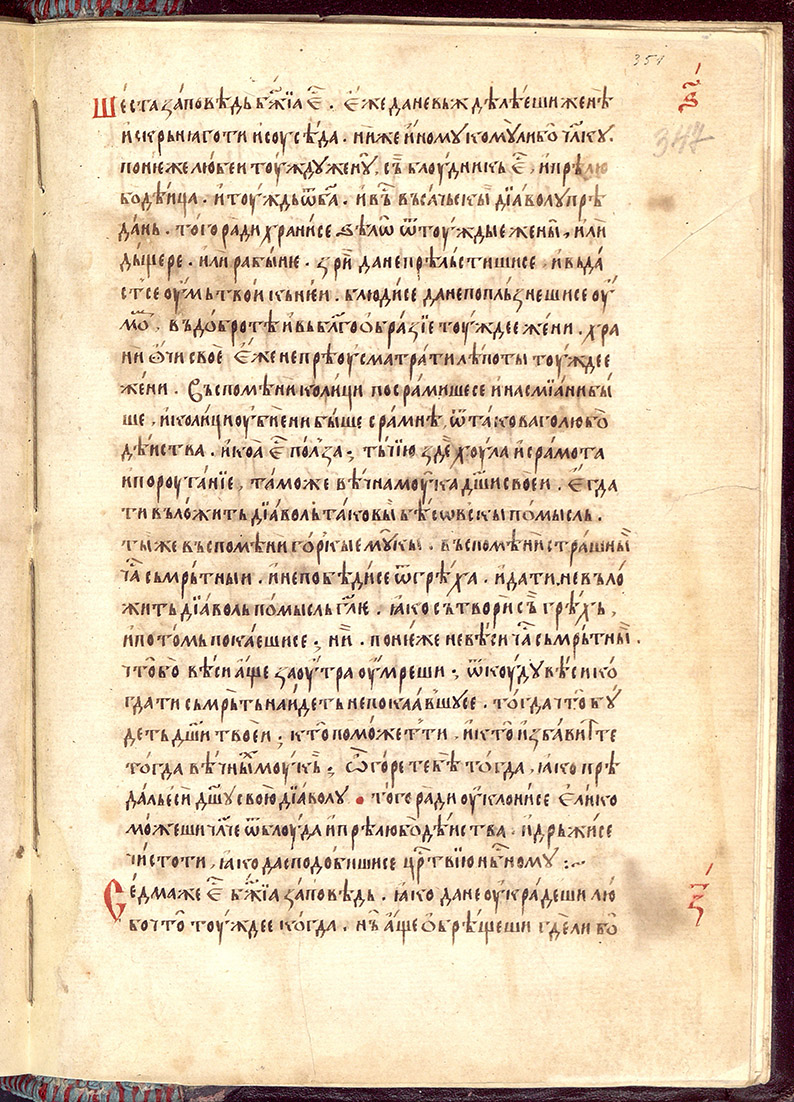 351
Ше́ста за́повѣдь бж҃їа е҆с҃ . є҆́же да не въжделѣ́еши женѣ
и҆́скрьнꙗго ти и҆ соусѣ́да . ни́же и҆но́му кому̀ либо̀ чл҃ку .
347
поне́же любе́и тоу́ждꙋ женꙋ̀ , съ̀ блоу́дникь е҆с҃ , и҆ прѣлю
бодѣ́ица . и҆ тоу́ждь ѿ ба҃ . и҆
дань . то́го ради храни́се ѕѣлѡ̀ ѿ тоу́ждые жены̀ , и҆лѝ
дъщере . и҆лѝ рабы́ню . зрѝ да не прѣльсти́шисе . и҆ въда́
стсе оу҆́мь тво́и къ нѥ́и . блюди́се да не попльзне́шисе оу҆
мо́м , въ до́бротѣ и҆ въ бл҃гоѡ́бразїе тоу́ждее же́ни . хра
нѝ ѻ҆́чи своѐ є҆́же не прѣоусматра́ти лѣ́поты тоу́ждее
же́ни . Въспоме́ни коли́ци посрами́шесе и҆ насмїа́ни бы́
ше , и҆ коли́ци оу҆бїе́ни бы́ше сра́мнѣ , ѿ тако́вагo любо
дѣ́иства . и҆ ко́а е҆с҃ по́лза ; ты́чїю здѐ хоу́ла и҆ срамота
и҆ пороуга́нїе , та́може вѣ́чна моу́ка дш҃и свое́и . Є҆гда
ти въло́жить дїа́воль тако́вы бѣсѡвскы по́мысль .
ты́ же въспоме́ни го́ркые мꙋ́кы . въспоме́ни стра́шны
ча҃ сьмрь́тныи . и҆ не побѣди́се ѿ грѣ́ха . и҆ да ти не въло́
жить дїа́воль по́мысль гл҃ю . ꙗ҆ко сътворѝ съ̀ грѣ́хь ,
и҆ пото́мь пока́ешисе ; нѝ . поне́же не вѣ́си ча҃ сьмрь́тны .
что́ бо вѣ́си а҆́ще заоу́тра оу҆́мреши ; ѿкоу́дꙋ вѣ́си ко
гда ти сьмрь́ть наи́деть не пока́авшꙋсе . тогда что̀ бꙋ́
деть дш҃и твое́и ; кто̀ помо́жет ти . и҆ кто̀ и҆зба́вит те
тогда вѣ́чных моу́кь ; Ѽ го́ре тебѣ̀ тогда , ꙗ҆ко прѣ
да́ль е҆сѝ дш҃ꙋ свою̀ дїа́волꙋ . то́го ради оу҆клони́се є҆ли́ко
мо́жеши чл҃че ѿ блоу́да и҆ прѣлюбодѣ́иства . и҆ дрьжи́се
чи́стоти , ꙗ҆ко да сподо́бишисе црⷭ҇твїю нбⷭ҇ному :~
Се́дма же е҆с҃ бж҃їа за́повѣдь . ꙗ҆ко да не оу҆кра́деши лю
бо что̀ тоу́ждее когда . нъ̀ а҆́ще ѡ҆брѣ́щеши гдѐ либо